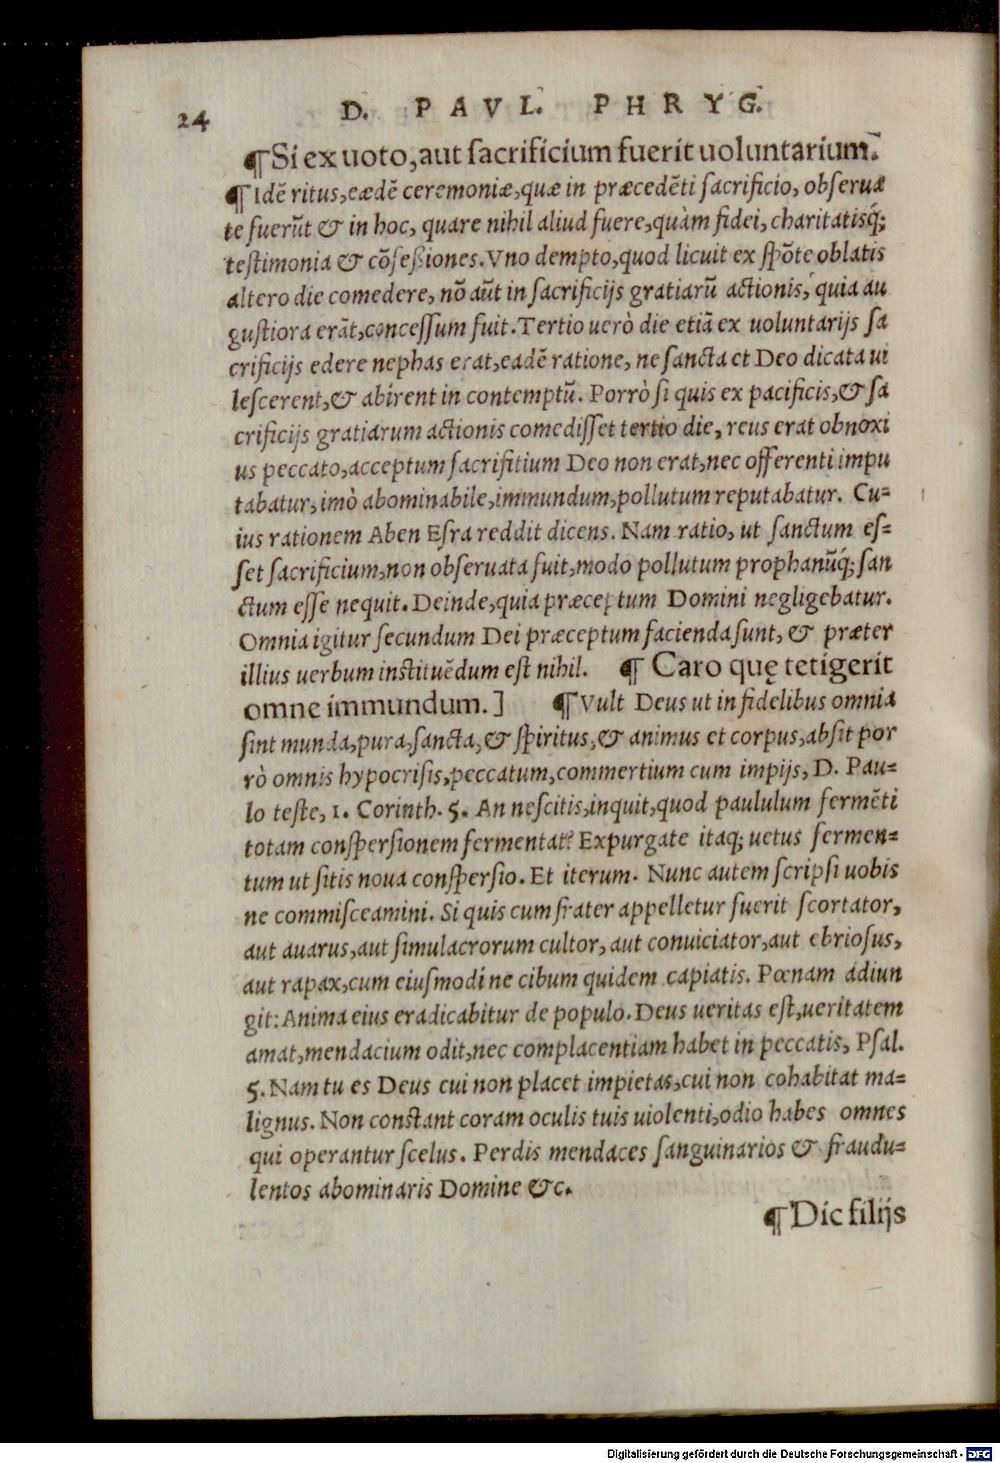 24
D. PAVL. PHRYG.
¶Si ex uoto, aut sacrificium fuerit uoluntarium.
¶Idē ritus, eædē ceremoniæ, quæ in præcedēti sacrificio, obseruæ
te fuerūt & in hoc, quare nihil aliud fuere, quàm fidei, charitatisq́;
testimonia & cōfeßiones. Vno dempto, quod licuit ex spōte oblatis
altero die comedere, nō aūt in sacrificijs gratiarū actionis, quia au
gustiora erāt, concessum fuit. Tertio uerò die etiā ex uoluntarijs sa
crificijs edere nephas erat, eadē ratione, ne sancta et Deo dicata ui
lescerent, & abirent in contemptū. Porrò si quis ex pacificis, & sa
crificijs gratiarum actionis comedisset tertio die, reus erat obnoxi
us peccato, acceptum sacrifitium Deo non erat, nec offerenti impu
tabatur, imò abominabile, immundum, pollutum reputabatur. Cu=
ius rationem Aben Esra reddit dicens. Nam ratio, ut sanctum es=
set sacrificium, non obseruata fuit, modo pollutum prophanūq́; san
ctum esse nequit. Deinde, quia præceptum Domini negligebatur.
Omnia igitur secundum Dei præceptum facienda sunt, & præter
illius uerbum instituēdum est nihil. ¶ Caro quę tetigerit
omne immundum.] ¶Vult Deus ut in fidelibus omnia
sint munda, pura, sancta, & spiritus, & animus et corpus, absit por
rò omnis hypocrisis, peccatum, commertium cum impijs, D. Pau=
lo teste, 1. Corinth. 5. An nescitis, inquit, quod paululum fermēti
totam conspersionem fermentat? Expurgate itaq; uetus fermen=
tum ut sitis noua conspersio. Et iterum. Nunc autem scripsi uobis
ne commisceamini. Si quis cum frater appelletur fuerit scortator,
aut auarus, aut simulacrorum cultor, aut conuiciator, aut ebriosus,
aut rapax, cum eiusmodi ne cibum quidem capiatis. Pœnam adiun
git: Anima eius eradicabitur de populo. Deus ueritas est, ueritatem
amat, mendacium odit, nec complacentiam habet in peccatis, Psal.
5. Nam tu es Deus cui non placet impietas, cui non cohabitat ma=
lignus. Non constant coram oculis tuis uiolenti, odio habes omnes
qui operantur scelus. Perdis mendaces sanguinarios & fraudu=
lentos abominaris Domine &c.
¶Dic filijs
Digitalisierung gefördert durch die Deutsche Forschungsgemeinschaft - DFG